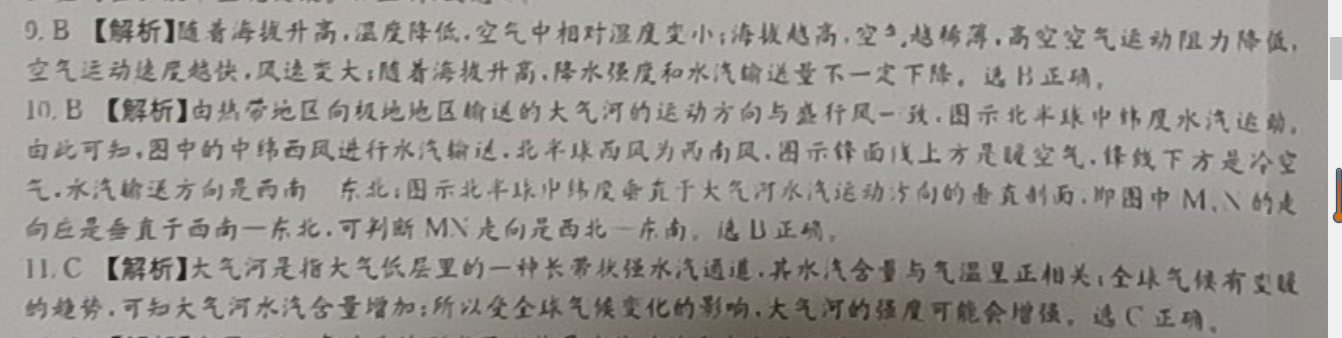 9. B 【解析】随着海拔升高,温度降低,空气中相对湿度变小;海拔越高,空气越稀薄,高空空气运动阻力降低,
空气运动速度越快,风速变大;随着海拔升高,降水强度和水汽输送量不一定下降。选B正确。
10. B 【解析】由热带地区向极地地区输送的大气河的运动方向与盛行风一致,图示北半球中纬度水汽运动,
由此可知,图中的中纬西风进行水汽输送,北半球西风为西南风,图示锋面线上方是暖空气,锋线下方是冷空
气,水汽输送方向是西南 东北;图示北半球中纬度垂直于大气河水汽运动方向的垂直剖面,即图中M、N的走
向应是垂直于西南—东北,可判断MN走向是西北—东南。选B正确。
11. C 【解析】大气河是指大气低层里的一种长带状强水汽通道,其水汽含量与气温呈正相关;全球气候有变暖
的趋势,可知大气河水汽含量增加;所以受全球气候变化的影响,大气河的强度可能会增强。选C正确。